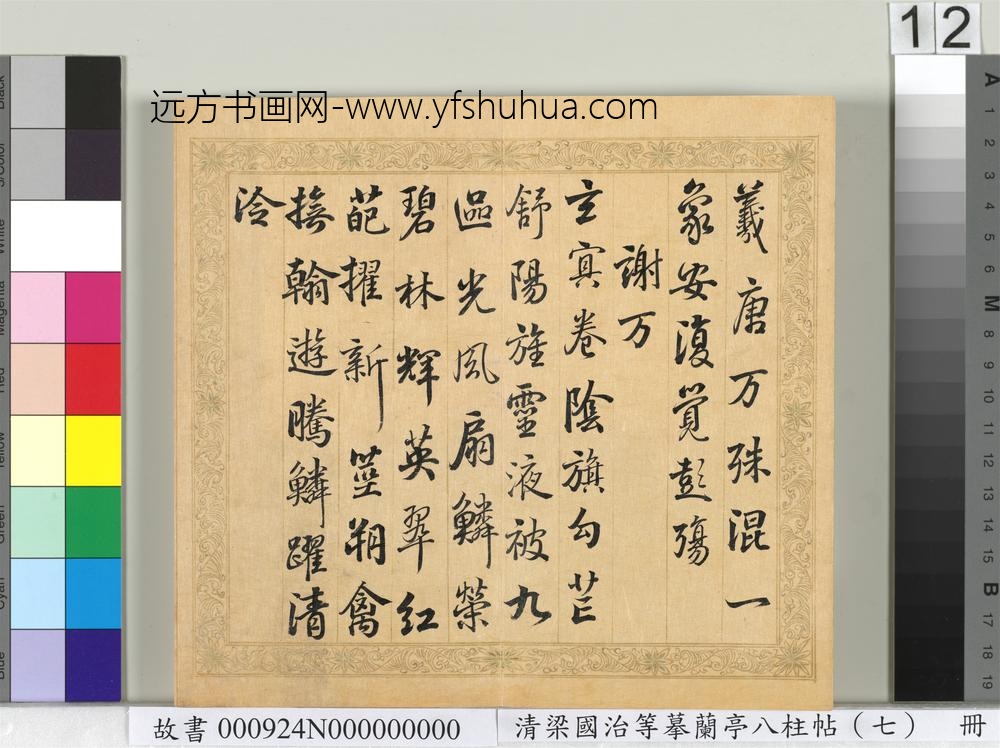 12
远方书画网-www.yfshuhua.com
羲唐万殊混一
象安復覚彭殤
謝万
玄冥卷陰旗勾芒
舒陽旌靈液被九
區光風扇鱗榮
碧林輝英翠紅
葩擢新莖翔禽
撫翰遊騰鱗躍清
泠
Black
3/Color
White
Magenta
Red
Yellow
Green
Cyan
Blue
A
1
2
3
4
5
6
M
8
9
10
11
12
13
14
15
B
17
18
19
故書 000924N000000000
清梁國治等摹蘭亭八柱帖（七） 冊